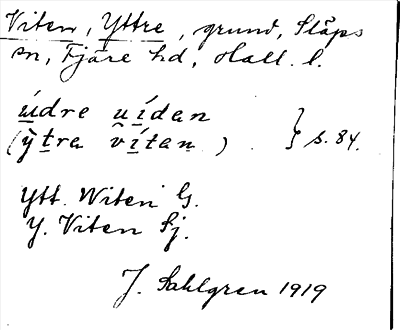 Viten, Yttre, grund, Släps
sn, Fjäre hd, Hall. l.
údre uídan
(ỳtra vítan) } s. 84.
Ytt. Witen G.
Y. Viten Sj.
J. Sahlgren 1919